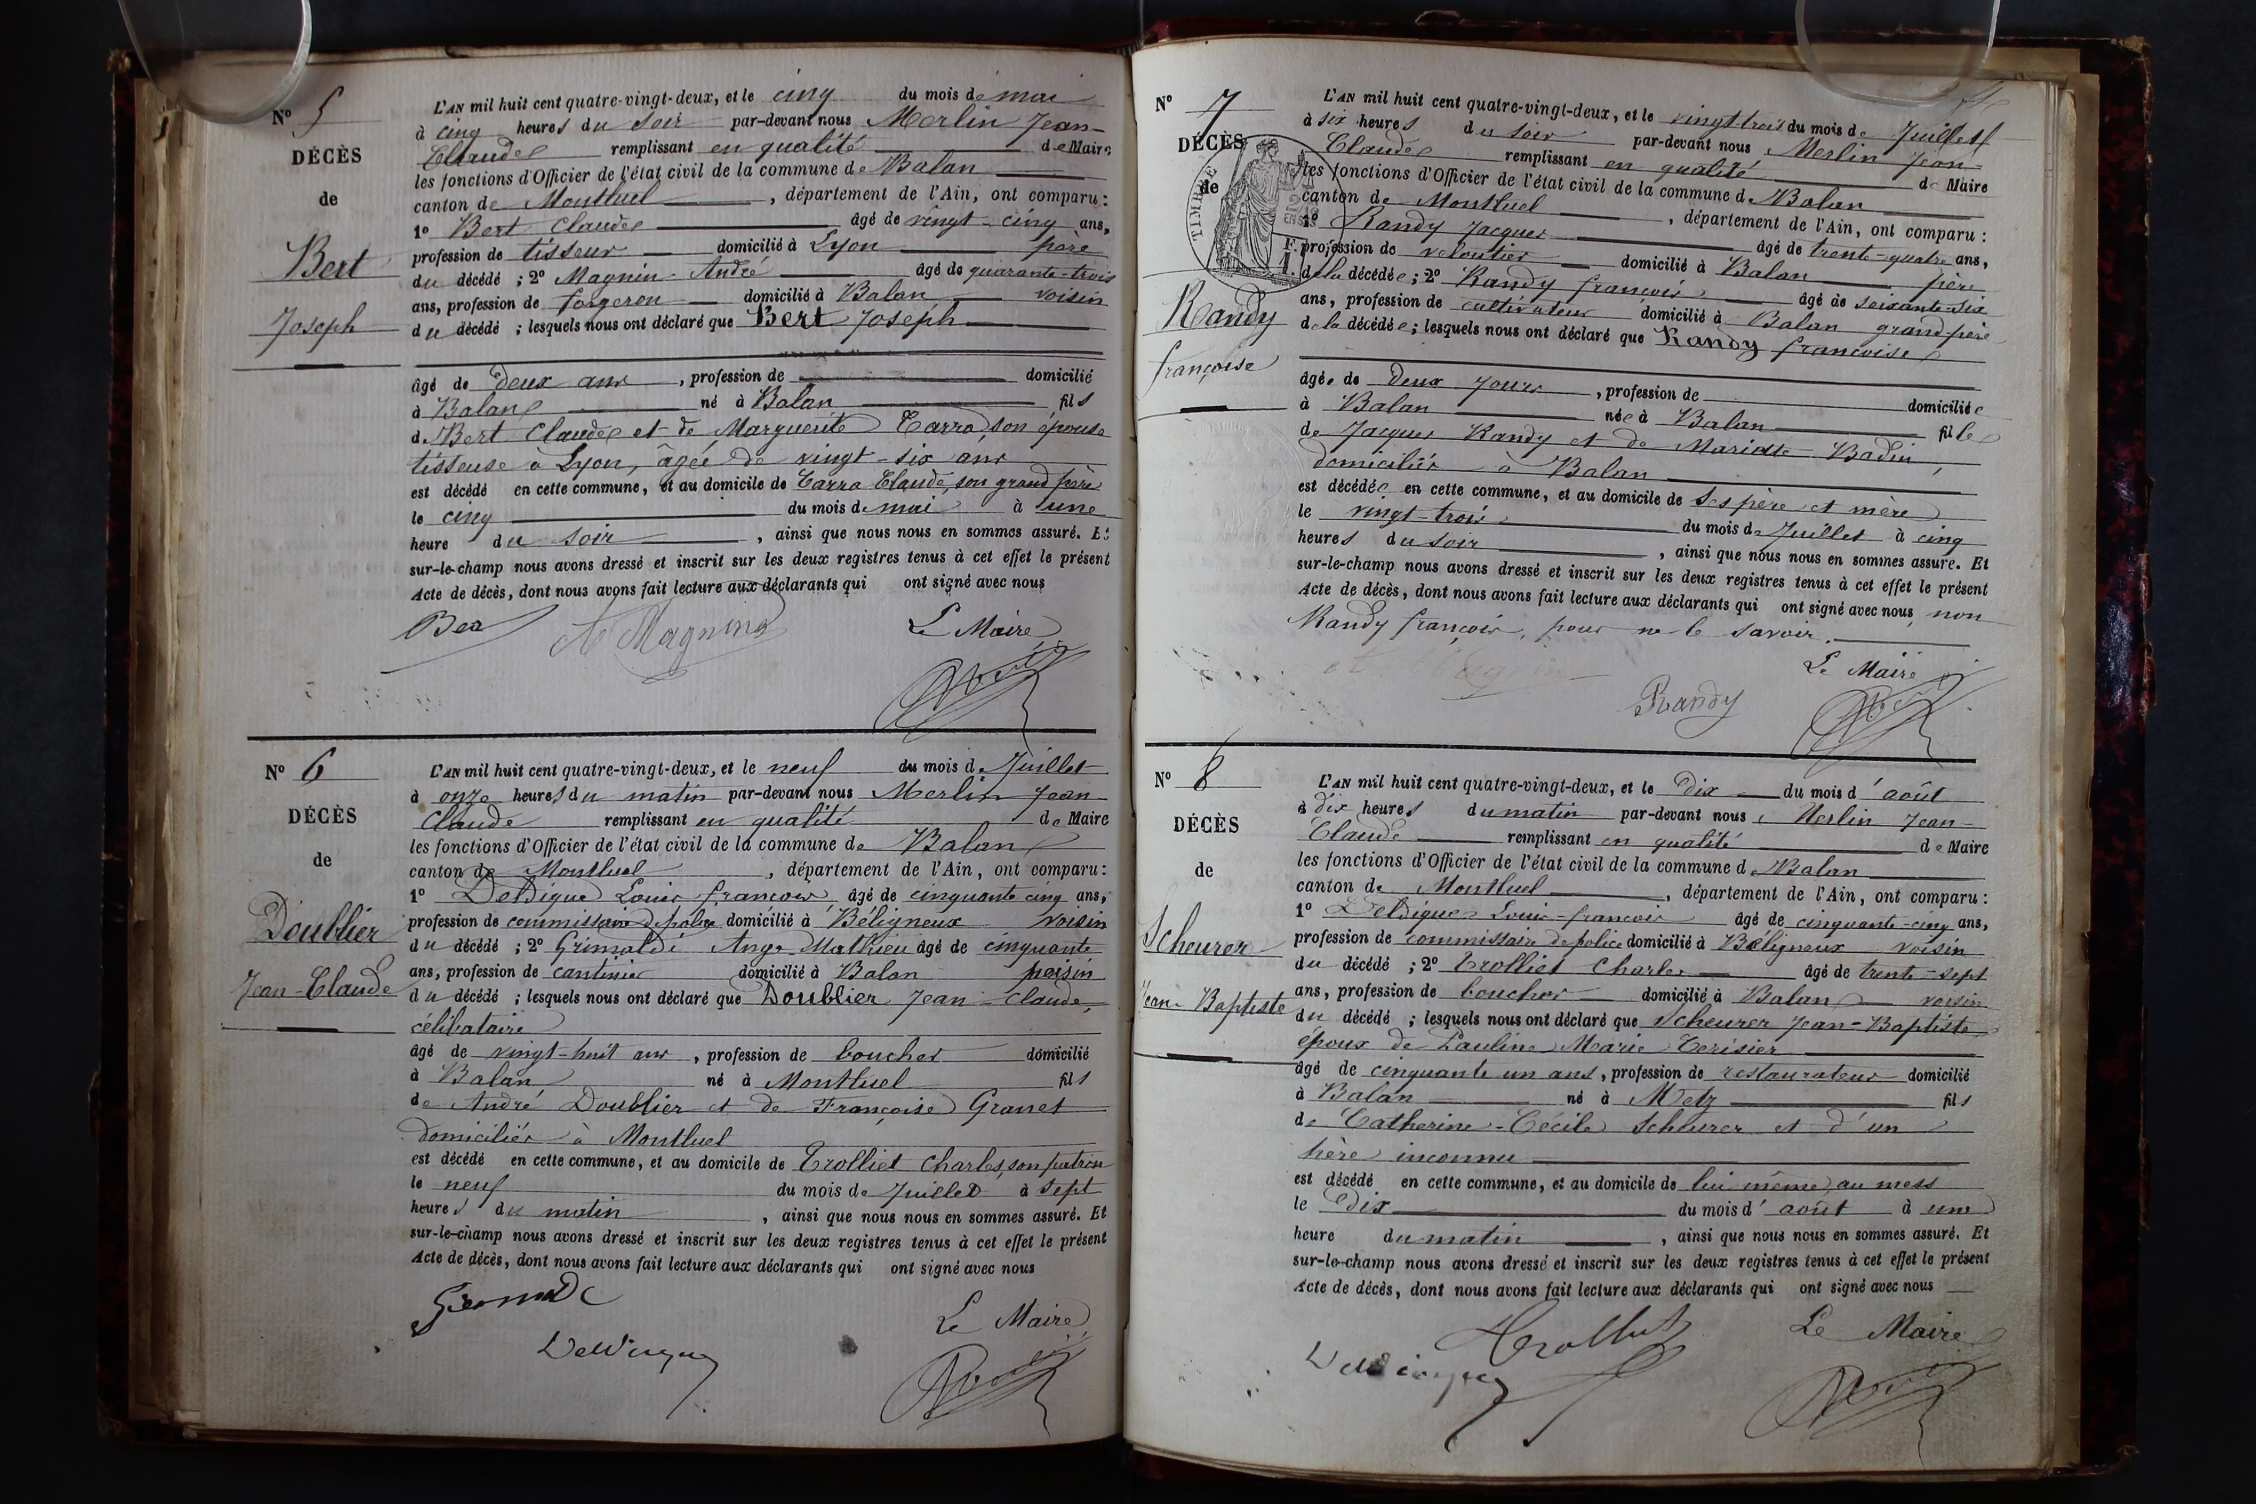 N° 5
DÉCÈS
de
Bert
Joseph
L'AN mil huit cent quatre-vingt-deux, et le cinq du mois de mai
à cinq heures du soir par-devant nous Merlin Jean-
Claude remplissant en qualité de Maire
les fonctions d'Officier de l'état civil de la commune de Balan
canton de Montluel, département de l'Ain, ont comparu :
1° Bert Claude âgé de vingt-cinq ans,
profession de tisseur domicilié à Lyon père
du décédé ; 2° Magnin André âgé de quarante-trois
ans, profession de forgeron domicilié à Balan voisin
du décédé ; lesquels nous ont déclaré que Bert Joseph
âgé de deux ans, profession de domicilié
à Balan né à Balan fils
de Bert Claude et de Marguerite Carra, son épouse
tisseuse à Lyon, âgée de vingt-six ans
est décédé en cette commune, et au domicile de Carra Claude, son grand père
le cinq du mois de mai à une
heure du soir, ainsi que nous nous en sommes assuré. Et
sur-le-champ nous avons dressé et inscrit sur les deux registres tenus à cet effet le présent
Acte de décès, dont nous avons fait lecture aux déclarants qui ont signé avec nous
Le Maire
Magnin
N° 6
DÉCÈS
de
Doublier
Jean-Claude
L'AN mil huit cent quatre-vingt-deux, et le neuf du mois de Juillet
à onze heures du matin par-devant nous Merlin Jean
Claude remplissant en qualité de Maire
les fonctions d'Officier de l'état civil de la commune de Balan
canton de Montluel, département de l'Ain, ont comparu :
1° Deldique Louis françois âgé de cinquante cinq ans,
profession de commissaire de police domicilié à Béligneux voisin
du décédé ; 2° Grimaldi Ange-Mathieu âgé de cinquante
ans, profession de cantinier domicilié à Balan voisin
du décédé ; lesquels nous ont déclaré que Doublier Jean-Claude,
célibataire
âgé de vingt-huit ans, profession de boucher domicilié
à Balan né à Montluel fils
de André Doublier et de Françoise Granet
domiciliés à Montluel
est décédé en cette commune, et au domicile de Trolliet Charles, son patron
le neuf du mois de Juillet à sept
heures du matin, ainsi que nous nous en sommes assuré. Et
sur-le-champ nous avons dressé et inscrit sur les deux registres tenus à cet effet le présent
Acte de décès, dont nous avons fait lecture aux déclarants qui ont signé avec nous
Le Maire
N° 7
DÉCÈS
de
TIMBRE
Randy
françoise
L'AN mil huit cent quatre-vingt-deux, et le vingt trois du mois de Juillet
à six heures du soir par-devant nous Merlin Jean-
Claude remplissant en qualité de Maire
les fonctions d'Officier de l'état civil de la commune de Balan
canton de Montluel, département de l'Ain, ont comparu :
1° Randy Jacques âgé de trente-quatre ans,
profession de veloutier domicilié à Balan père
de la décédée ; 2° Randy françois âgé de soixante-six
ans, profession de cultivateur domicilié à Balan grand-père
de la décédée ; lesquels nous ont déclaré que Randy françoise
âgée de deux jours, profession de domiciliée
à Balan née à Balan fille
de Jacques Randy et de Mariette Badin,
domiciliés à Balan
est décédée en cette commune, et au domicile de ses père et mère
le vingt-trois du mois de Juillet à cinq
heures du soir, ainsi que nous nous en sommes assuré. Et
sur-le-champ nous avons dressé et inscrit sur les deux registres tenus à cet effet le présent
Acte de décès, dont nous avons fait lecture aux déclarants qui ont signé avec nous, non
Randy françois, pour ne le savoir.
Le Maire
Randy
N° 8
DÉCÈS
de
Scheurer
Jean-Baptiste
L'AN mil huit cent quatre-vingt-deux, et le dix du mois d'août
à dix heures du matin par-devant nous Merlin Jean-
Claude remplissant en qualité de Maire
les fonctions d'Officier de l'état civil de la commune de Balan
canton de Montluel, département de l'Ain, ont comparu :
1° Deldique Louis-françois âgé de cinquante-cinq ans,
profession de commissaire de police domicilié à Béligneux voisin
du décédé ; 2° Trolliet Charles âgé de trente-sept
ans, profession de boucher domicilié à Balan voisin
du décédé ; lesquels nous ont déclaré que Scheurer Jean-Baptiste
époux de Pauline Marie Cerisier
âgé de cinquante un ans, profession de restaurateur domicilié
à Balan né à Metz fils
de Catherine-Cécile Scheurer et d'un
père inconnu
est décédé en cette commune, et au domicile de lui même, au mess
le dix du mois d'août à une
heure du matin, ainsi que nous nous en sommes assuré. Et
sur-le-champ nous avons dressé et inscrit sur les deux registres tenus à cet effet le présent
Acte de décès, dont nous avons fait lecture aux déclarants qui ont signé avec nous
Le Maire